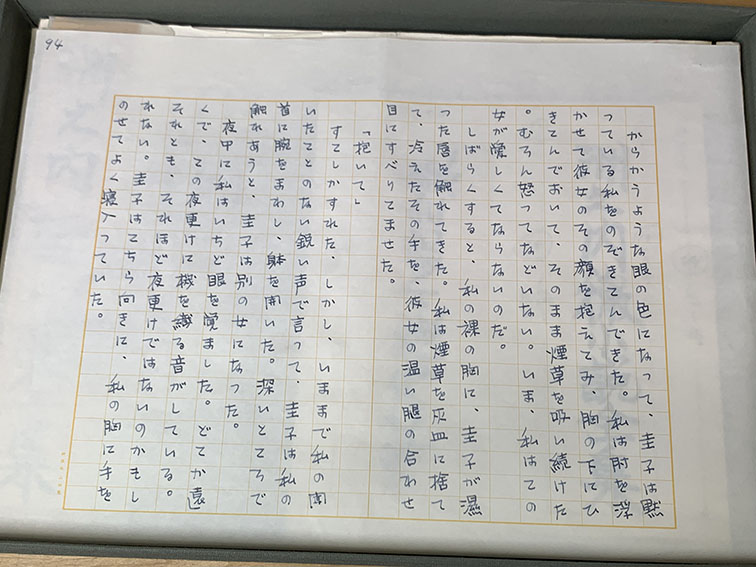 94
からかうような眼の色になって、圭子は黙
っている私をのぞきこんできた。私は肘を浮
かせて彼女のその顔を抱えこみ、胸の下にひ
きこんでおいて、そのまま煙草を吸い続けた
。むろん怒ってなどいない。いま、私はこの
女が愛しくてならないのだ。
しばらくすると、私の裸の胸に、圭子が濕
った唇を触れてきた。私は煙草を灰皿に捨て
て、冷えたその手を、彼女の温い腿の合わせ
目にすべりこませた。
「抱いて」
すこしかすれた、しかし、いままで私の聞
いたことのない鋭い声で言って、圭子は私の
首に腕をまわし、躰を開いた。深いところで
触れあうと、圭子は別の女になった。
夜中に私はいちど眼を覚ました。どこか遠
くで、この夜更けに機を織る音がしている。
それとも、それほど夜更けではないのかもし
れない。圭子はこちら向きに、私の胸に手を
のせてよく寝入っていた。